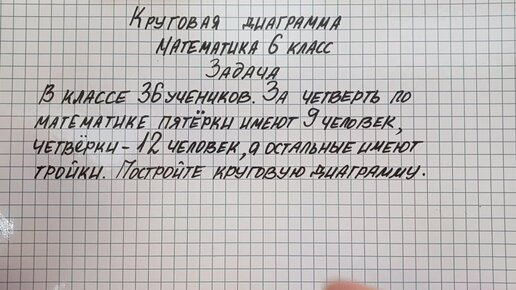 Круговая диаграмма
Математика 6 класс
Задача
В классе 36 учеников. За четверть по
математике пятёрки имеют 9 человек,
четвёрки - 12 человек, а остальные имеют
тройки. Постройте круговую диаграмму.